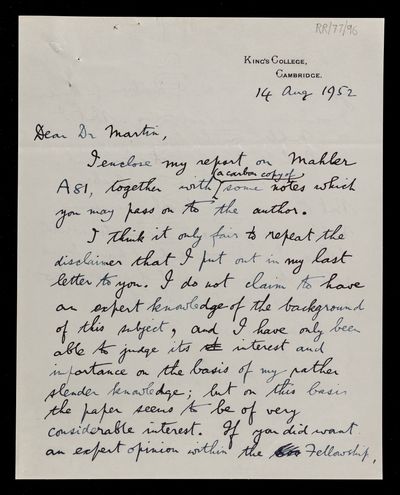 RR/77/96
KING'S COLLEGE,
CAMBRIDGE.
14 Aug 1952
Dear Dr Martin,
I enclose my report on Mahler
(a carbon copy of
A81, together with some notes which
you may pass on to the author.
I think it only fair to repeat the
disclaimer that I put out in my last
letter to you. I do not claim to have
an expert knowledge of the background
of this subject, and I have only been
able to judge its interest and
importance on the basis of my rather
slender knowledge; but on this basis
the paper seems to be of very
considerable interest. If you did want
an expert opinion within the Fellowship,